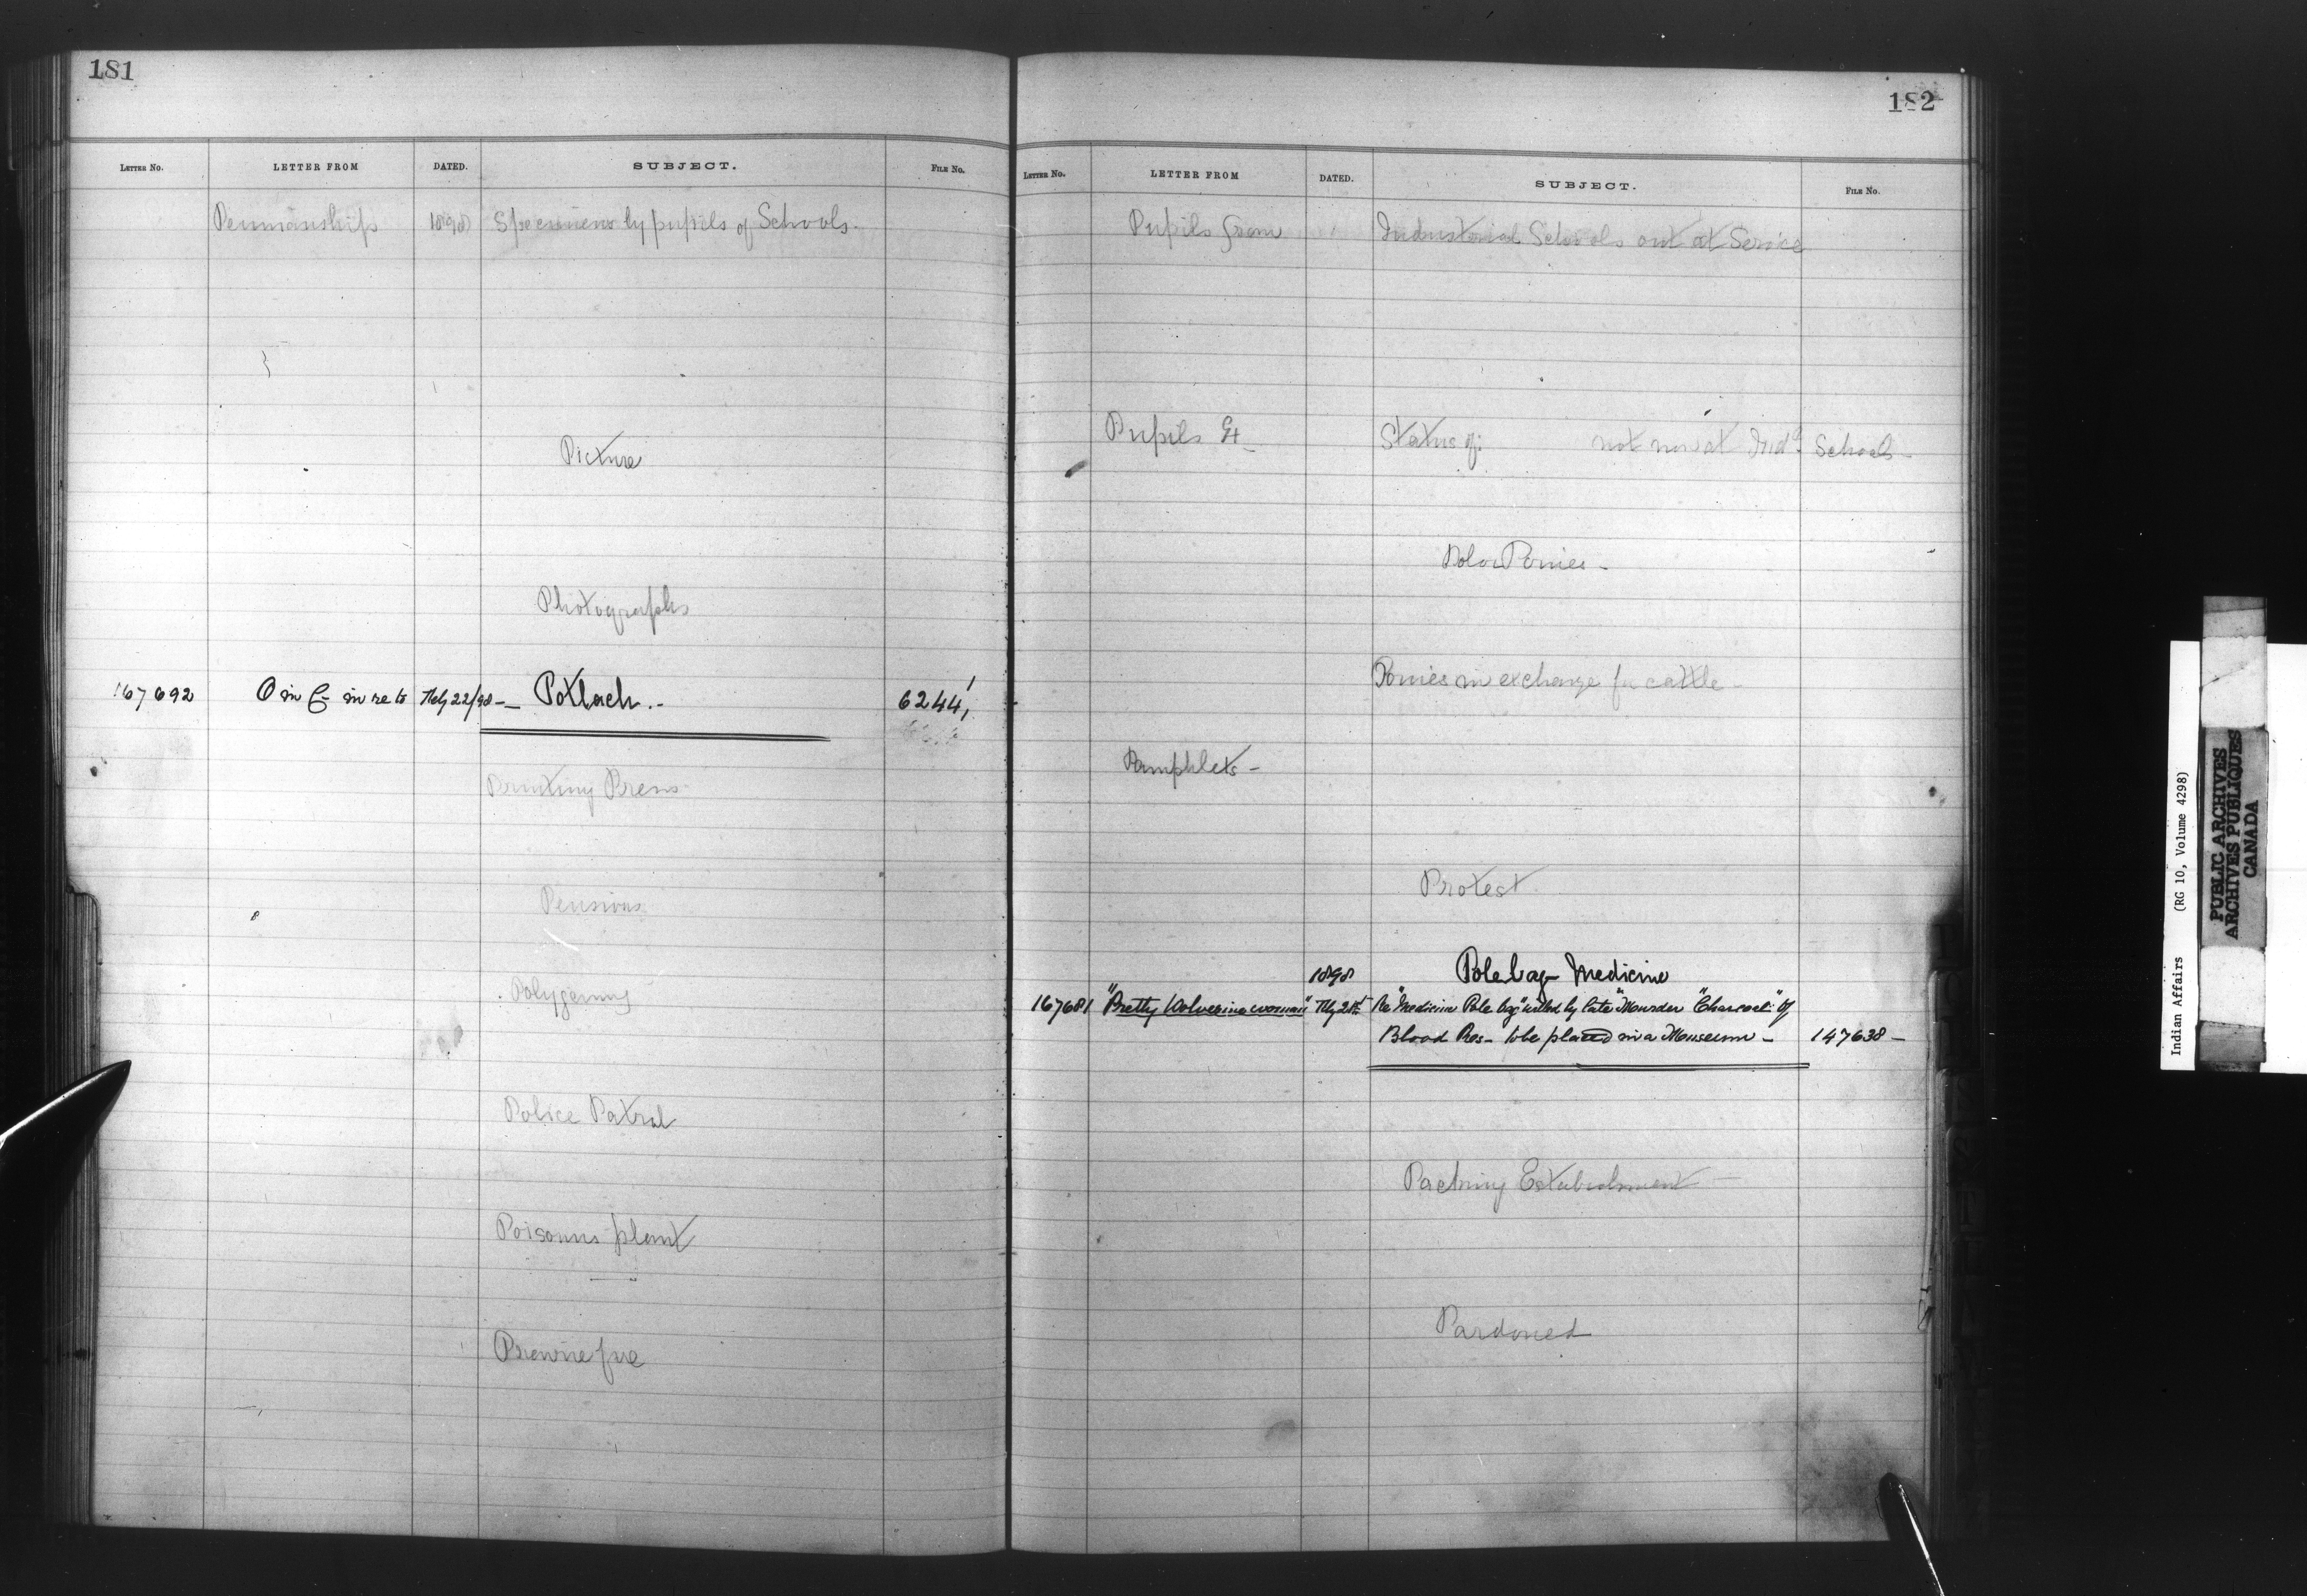 181
LETTER No. LETTER FROM DATED. SUBJECT. FILE No.
Penmanship 1898 Specimens by pupils of Schools.
Picture
Photographs
167692 O in C in re to 22/98 — Potlach.- 6244,
Printing Press
Pensions
Polygamy
Police Patrol
Poisonus plant
Prairie fire
182
LETTER No. LETTER FROM DATED. SUBJECT. FILE No.
Pupils from Industrial Schools out at Service
Pupils Status of: not now at Indl. Schools -
Polo Ponies -
Ponies in exchange for cattle -
Pamphlets -
Protest
1898 Pole bag - Medicine
167681 "Pretty Wolverine woman" Re "Medicine Pole bag" willed by late "Charcoal" of
Blood Res - to be placed in a Museum - 147638 -
Packing Establishment -
Pardoned
Indian Affairs (RG 10, Volume 4298)
PUBLIC ARCHIVES
ARCHIVES PUBLIQUES
CANADA